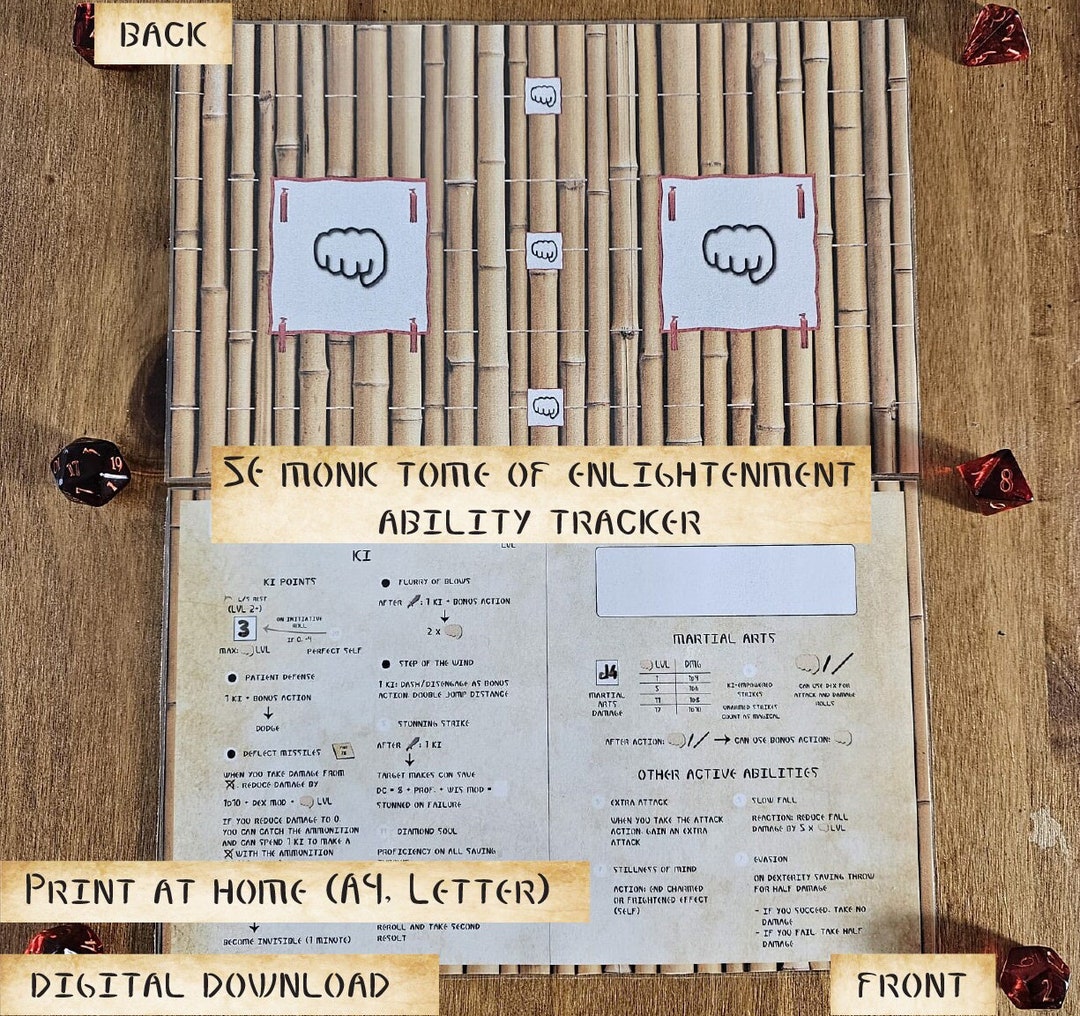 BACK
5E MONK TOME OF ENLIGHTENMENT
ABILITY TRACKER
KI
LVL
KI POINTS
L/S REST
(LVL 2+)
ON INITIATIVE
ROLL
3
IF 0, +4
MAX: LVL
PERFECT SELF
PATIENT DEFENSE
1 KI + BONUS ACTION
DODGE
DEFLECT MISSILES
WHEN YOU TAKE DAMAGE FROM
, REDUCE DAMAGE BY
1D10 + DEX MOD + LVL
IF YOU REDUCE DAMAGE TO 0,
YOU CAN CATCH THE AMMUNITION
AND CAN SPEND 1 KI TO MAKE A
WITH THE AMMUNITION
BECOME INVISIBLE (1 MINUTE)
FLURRY OF BLOWS
AFTER : 1 KI + BONUS ACTION
2 X
STEP OF THE WIND
1 KI: DASH/DISENGAGE AS BONUS
ACTION, DOUBLE JUMP DISTANCE
STUNNING STRIKE
AFTER : 1 KI
TARGET MAKES CON SAVE
DC = 8 + PROF. + WIS MOD =
STUNNED ON FAILURE
DIAMOND SOUL
PROFICIENCY ON ALL SAVING
REROLL AND TAKE SECOND
RESULT
MARTIAL ARTS
D4
MARTIAL
ARTS
DAMAGE
LVL DMG
1 1D4
5 1D6
11 1D8
17 1D10
KI-EMPOWERED
STRIKES
UNARMED STRIKES
COUNT AS MAGICAL
CAN USE DEX FOR
ATTACK AND DAMAGE
ROLLS
AFTER ACTION: / → CAN USE BONUS ACTION:
OTHER ACTIVE ABILITIES
EXTRA ATTACK
WHEN YOU TAKE THE ATTACK
ACTION, GAIN AN EXTRA
ATTACK
STILLNESS OF MIND
ACTION: END CHARMED
OR FRIGHTENED EFFECT
(SELF)
SLOW FALL
REACTION: REDUCE FALL
DAMAGE BY 5 X LVL
EVASION
ON DEXTERITY SAVING THROW
FOR HALF DAMAGE
- IF YOU SUCCEED, TAKE NO
DAMAGE
- IF YOU FAIL, TAKE HALF
DAMAGE
PRINT AT HOME (A4, LETTER)
DIGITAL DOWNLOAD
FRONT
19
17
1
7
8